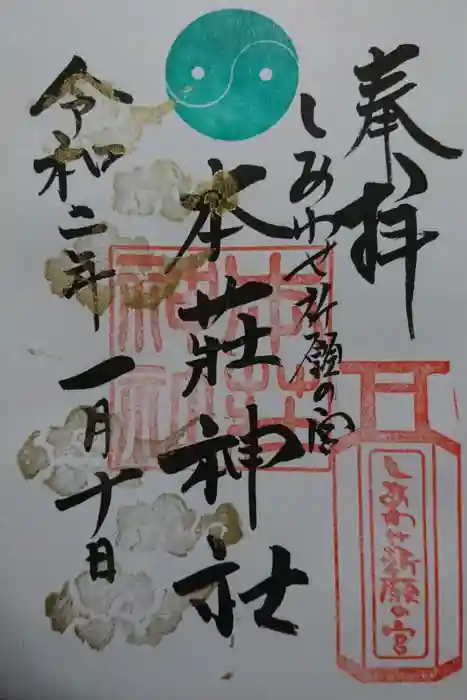 奉拝
しあわせ祈願の宮
本荘神社
令和二年 一月十日
本荘神社
しあわせ祈願の宮